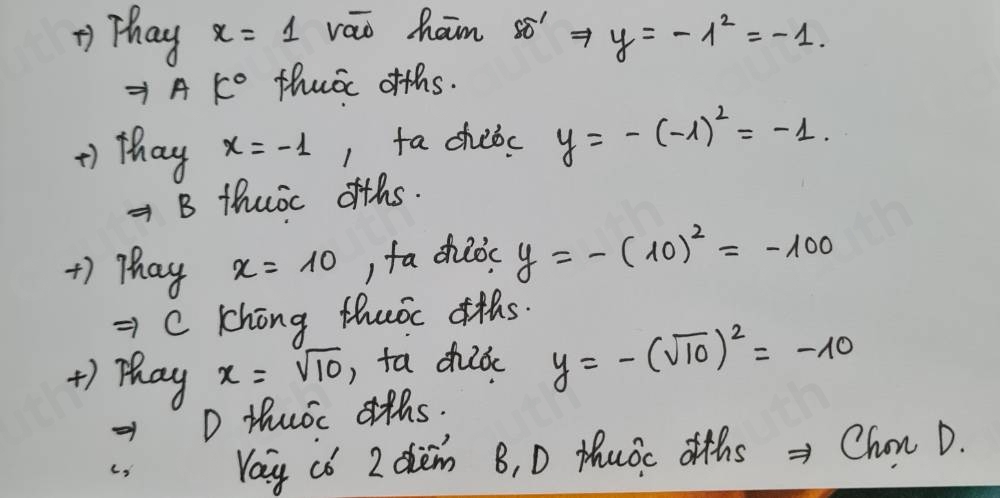 +) Thay x = 1 vào hàm số ⇒ y = -1² = -1.
⇒ A K° thuộc đths.
+) Thay x = -1, ta được y = -(-1)² = -1.
⇒ B thuộc đths.
+) Thay x = 10, ta được y = -(10)² = -100
⇒ C không thuộc đths.
+) Thay x = √10, ta được y = -(√10)² = -10
⇒ D thuộc đths.
Vậy có 2 điểm B, D thuộc đths ⇒ Chọn D.